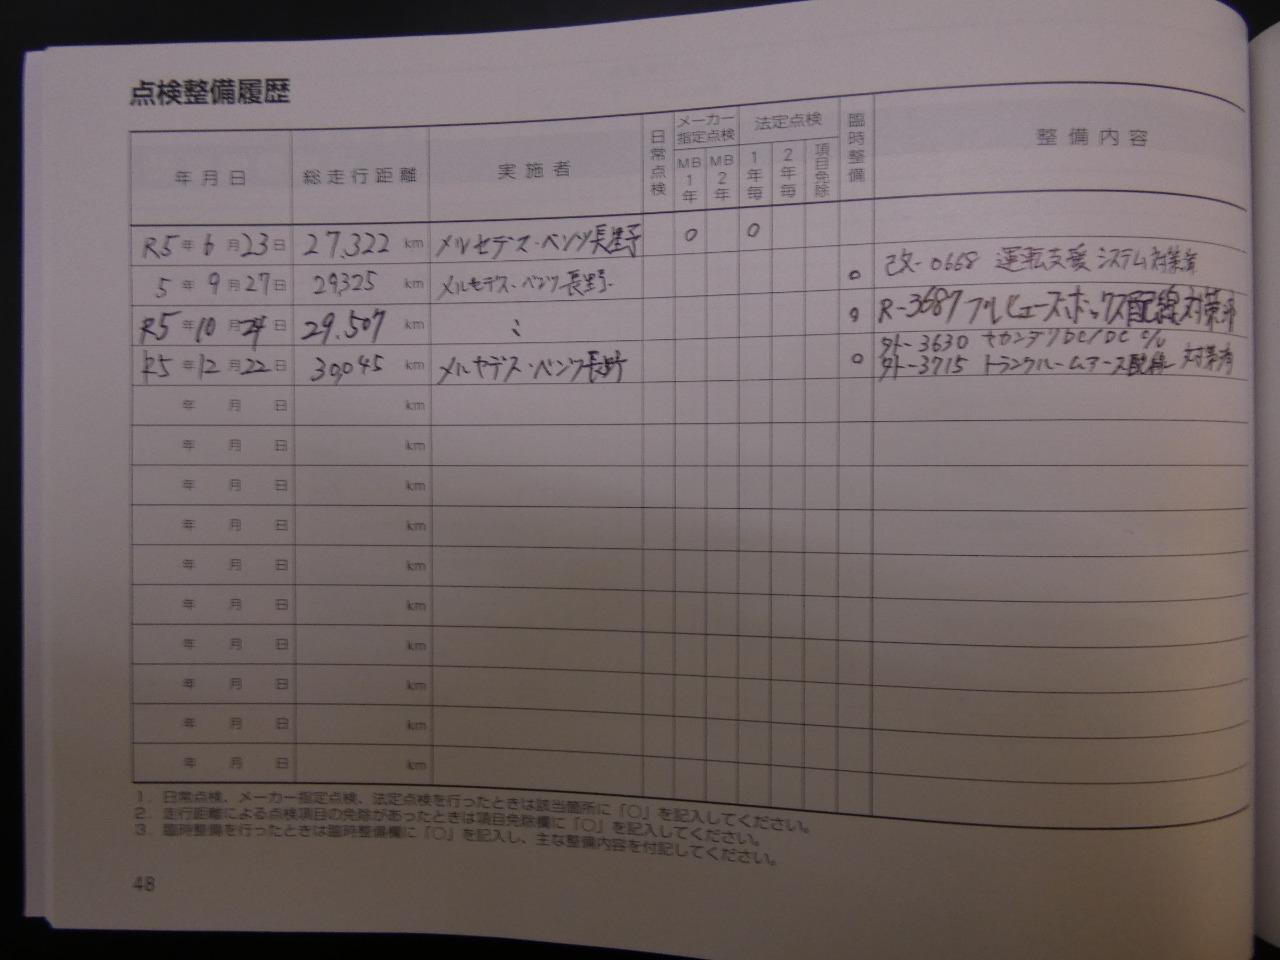 点検整備履歴
年月日 総走行距離 実施者 日常点検 メーカー指定点検 法定点検 臨時整備 整備内容
MB1年 MB2年 1年毎 2年毎 項目免除
R5年6月23日 27,322 km メルセデス・ベンツ長野 ○ ○
5年9月27日 29,325 km メルセデス・ベンツ長野 ○ 改-0668 運転支援システム対策済
R5年10月24日 29,507 km 〃 ○ R-3687 プルヒューズボックス配線対策済
R5年12月22日 30,045 km メルセデス・ベンツ長野 ○ 外-3630 セカンダリDC/DC
外-3715 トランクルームアース配線 対策済
年 月 日 km
年 月 日 km
年 月 日 km
年 月 日 km
年 月 日 km
年 月 日 km
年 月 日 km
年 月 日 km
年 月 日 km
年 月 日 km
1. 日常点検、メーカー指定点検、法定点検を行ったときは該当箇所に「○」を記入してください。
2. 走行距離による点検項目の免除があったときは項目免除欄に「○」を記入してください。
3. 臨時整備を行ったときは臨時整備欄に「○」を記入し、主な整備内容を付記してください。
48